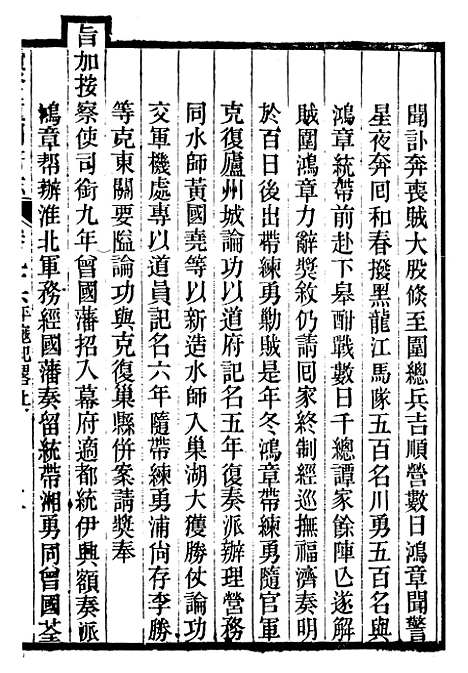 聞訃奔喪賊大股倐至圍總兵吉順營數日鴻章聞警
星夜奔囘和春撥黑龍江馬隊五百名川勇五百名與
鴻章統帶前赴下臯酣戰數日千總譚家餘陣亾遂解
賊圍鴻章力辭奬敘仍請囘家終制經巡撫福濟奏明
於百日後出帶練勇勦賊是年冬鴻章帶練勇隨官軍
克復廬州城論功以道府記名五年復奏派辦理營務
同水師黃國堯等以新造水師入巢湖大獲勝仗論功
交軍機處專以道員記名六年隨帶練勇浦尙存李勝
等克東關要隘論功與克復巢縣併案請奬奉
旨加按察使司銜九年曾國藩招入幕府適都統伊興額奏派
鴻章帮辦淮北軍務經國藩奏留統帶湘勇同曾國荃